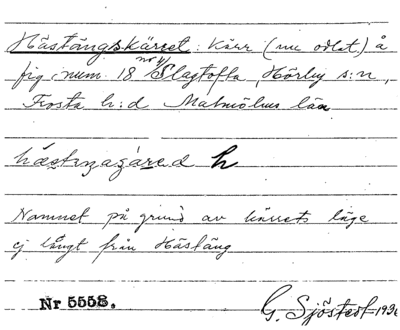 Hästängskärret: Kärr (nu odlat) å
fig. num. 18 nr 4 Slagtofta, Hörby s:n,
Frosta h:d Malmöhus län
h
Namnet på grund av kärrets läge
ej långt från Hästäng
Nr 5558.
G. Sjöstedt 1936